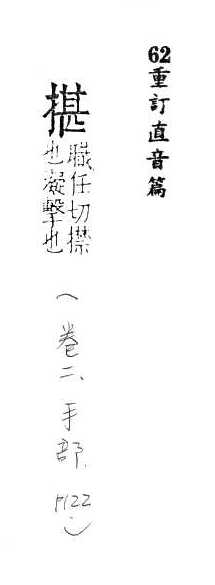 62重訂直音篇
揕
職任切㩒
也凝擊也
(卷二、手部, P122.)